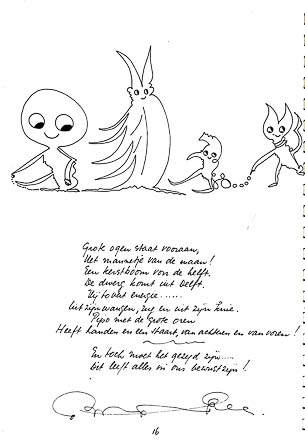 Grote ogen staat vooraan,
Het mannetje van de maan!
Een kerstboom voor de helft.
De dwerg komt uit Delft.
Hij tovert energie......
Uit zijn wangen, rug en uit zijn knie.
Pipo met de grote oren
Heeft handen en een staart, van achteren en van voren!
En toch moet het gezegd zijn....
Dit leeft alles in ons bewustzijn!
16